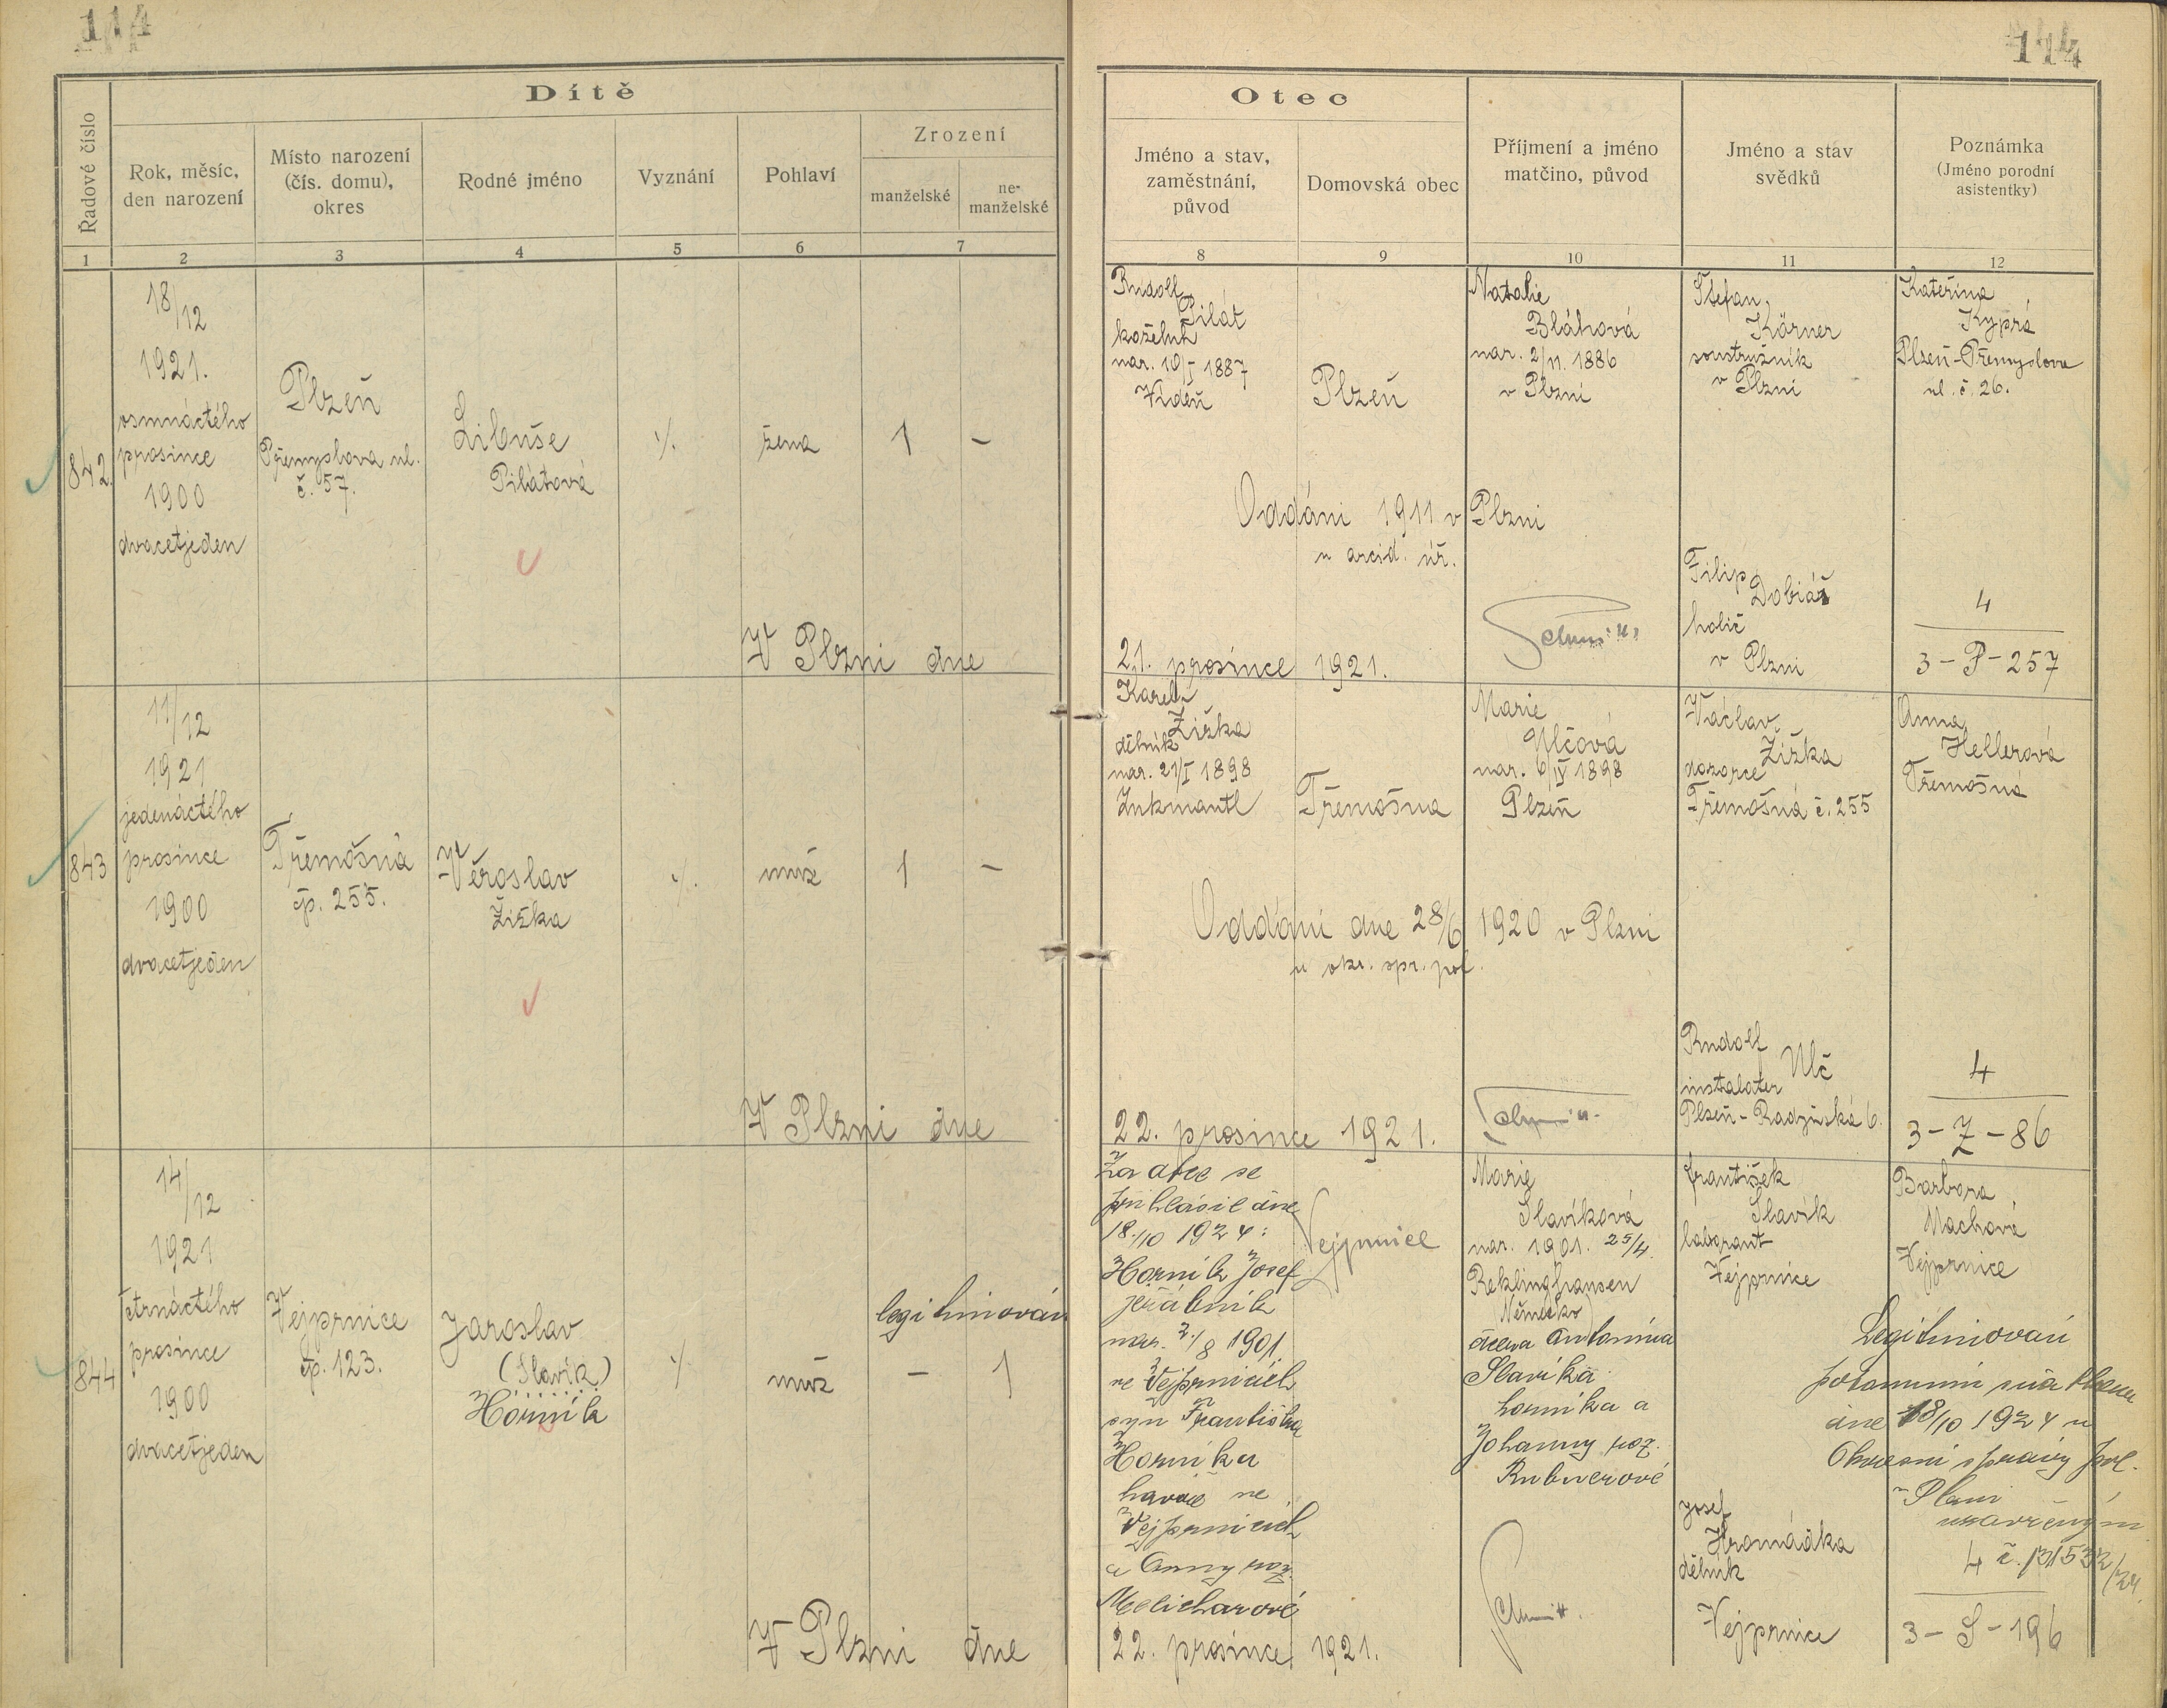 114
114
Dítě
Řadové číslo
Rok, měsíc,
den narození
Místo narození
(čís. domu),
okres
Rodné jméno
Vyznání
Pohlaví
Zrození
manželské
ne-
manželské
1
2
3
4
5
6
7
Otec
Jméno a stav,
zaměstnání,
původ
Domovská obec
Příjmení a jméno
matčino, původ
Jméno a stav
svědků
Poznámka
(Jméno porodní
asistentky)
8
9
10
11
12
842.
18/12
1921.
osmnáctého
prosince
1900
dvacetjeden
Plzeň
Přemyslova ul.
č. 57.
Libuše
Pilátová
%.
žena
1
–
V Plzni dne
Rudolf
Pilát
koželuh
nar. 10/I 1887
Vídeň
Plzeň
Natalie
Bláhová
nar. 2/11. 1886
v Plzni
Štefan
Körner
soustružník
v Plzni
Kateřina
Kyprá
Plzeň-Přemyslova
ul. č. 26.
Oddáni 1911 v Plzni
u arcid. úř.
Filip
Dobiáš
holič
v Plzni
4
3-P-257
21. prosince 1921.
843
11/12
1921
jedenáctého
prosince
1900
dvacetjeden
Třemošná
čp. 255.
Věroslav
Žižka
%.
muž
1
–
V Plzni dne
Karel
Žižka
dělník
nar. 21/I 1898
Inkmantl
Třemošna
Marie
Ulčová
nar. 6/IV 1898
Plzeň
Václav
Žižka
dozorce
Třemošná č. 255
Anna
Hellerová
Třemošná
Oddáni dne 28/6 1920 v Plzni
u okr. spr. pol.
Rudolf
Ulč
instalater
Plzeň-Radyňská 6.
4
3-Z-86
22. prosince 1921.
844
14/12
1921
čtrnáctého
prosince
1900
dvacetjeden
Vejprnice
čp. 123.
Jaroslav
(Slavík)
Horník
%
muž
legitimován
–
1
V Plzni dne
Za otce se
přihlásil dne
18./10 1924:
Horník Josef
jeřábník
nar. 2./8 1901.
ve Vejprnicích
syn Františka
Horníka
havíře ve
Vejprnicích
a Anny roz.
Melicharové
Vejprnice
Marie
Slavíková
nar. 1901. 25/4.
Reklinghausen
Německo)
dcera Antonína
Slavíka
horníka a
Johanny roz.
Rubnerové
František
Slavík
laborant
Vejprnice
Barbora
Machová
Vejprnice
Legitimování
dne 18/10 1924 u
Okresní správy pol.
v Plzni
uzavřeným
4 č. 131532/24
Josef
Hromádka
dělník
Vejprnice
3-S-196
22. prosince 1921.